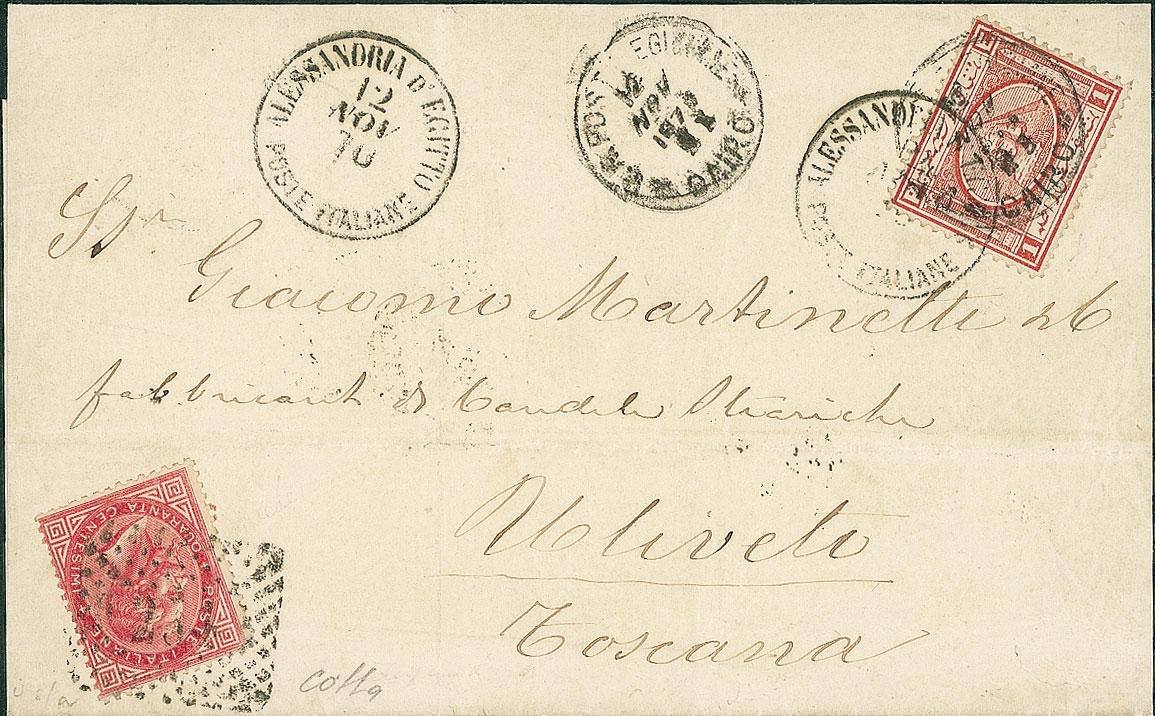 ALESSANDRIA D'EGITTO
12
NOV
70
POSTE ITALIANE
POSTE EGIZIANE
NOV
CAIRO
ALESSANDR
POSTE ITALIANE
1
1
CAIRO
1
1
Giacomo Martinetti
fabbricanti di Candele Steariche
Uliveto
Toscana
QUARANTA CENTESIMI
POSTE ITALIANE